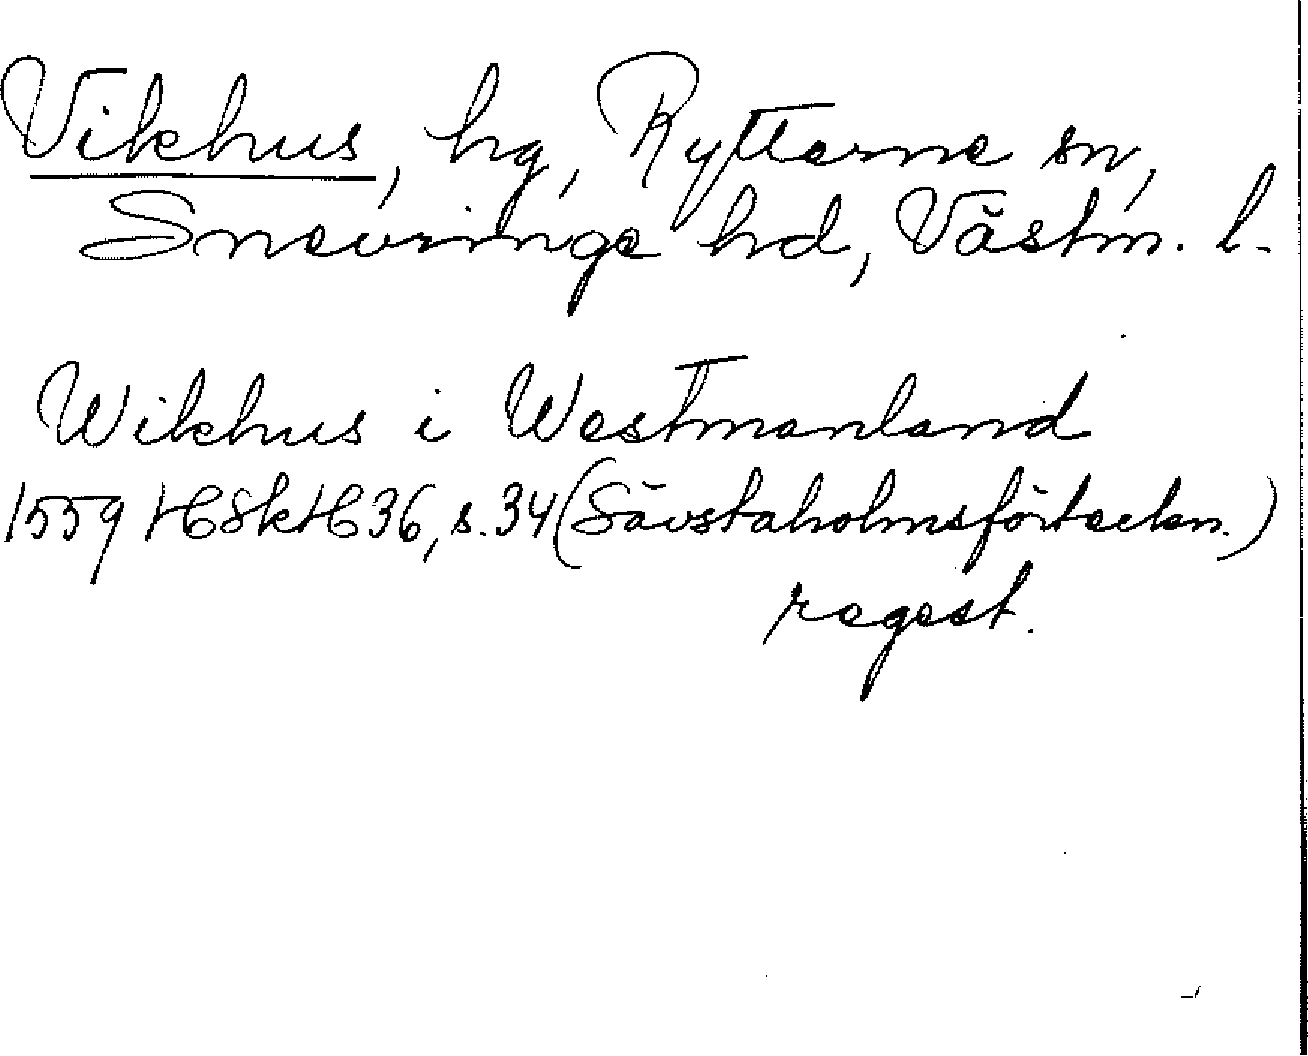 Vikhus, hg, Rytterne sn,
Snevringe hd, Västm. l.
Wikhus i Westmanland
1559 HSkH 36, s. 34 (Sävstaholmsförteckn.)
regest.